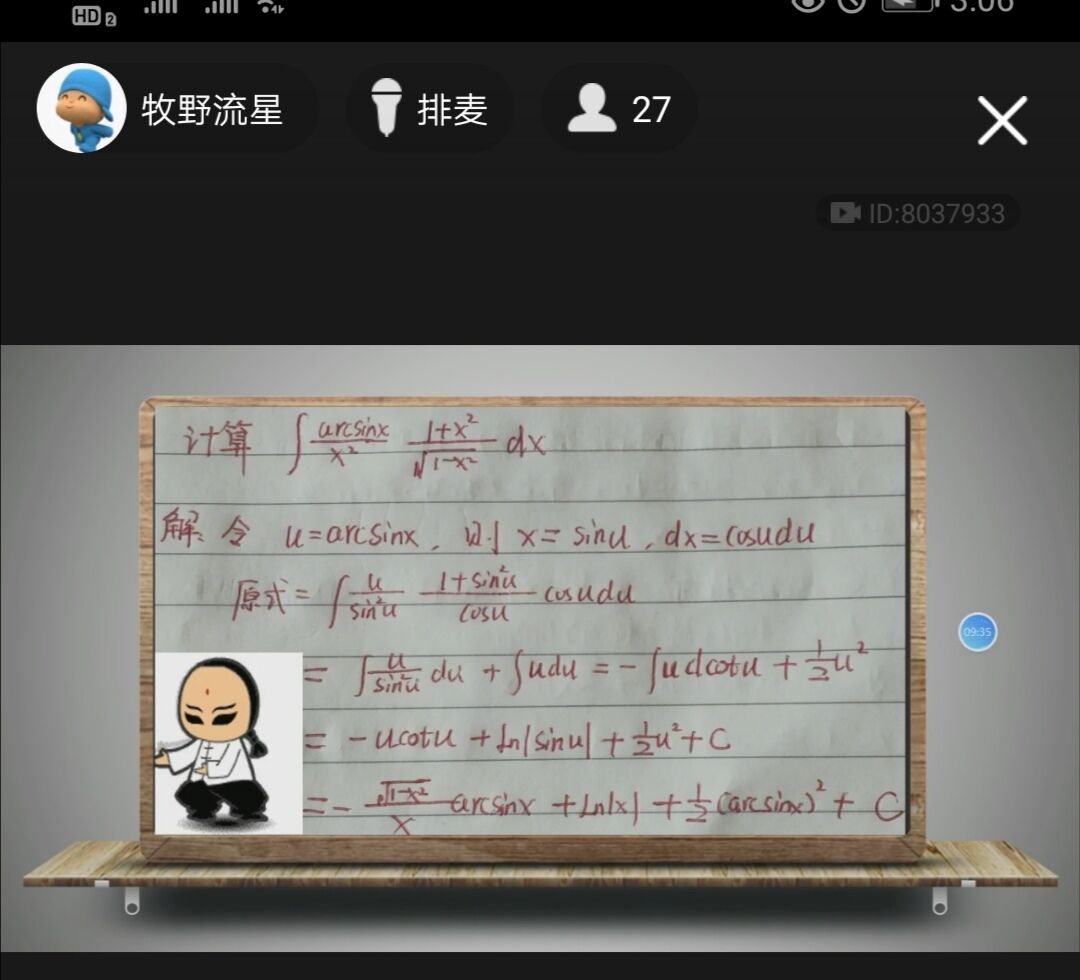 HD 2
3:06
牧野流星 排麦 27
ID:8037933
计算 ∫ arcsinx/x² (1+x²)/√(1-x²) dx
解: 令 u=arcsinx, 则 x=sinu, dx=cosudu
原式= ∫ u/sin²u (1+sin²u)/cosu cosudu
= ∫ u/sin²u du + ∫udu = -∫udcotu + 1/2u²
= -ucotu + ln|sinu| + 1/2u² + C
= - √(1-x²)/x arcsinx + ln|x| + 1/2(arcsinx)² + C
09:35